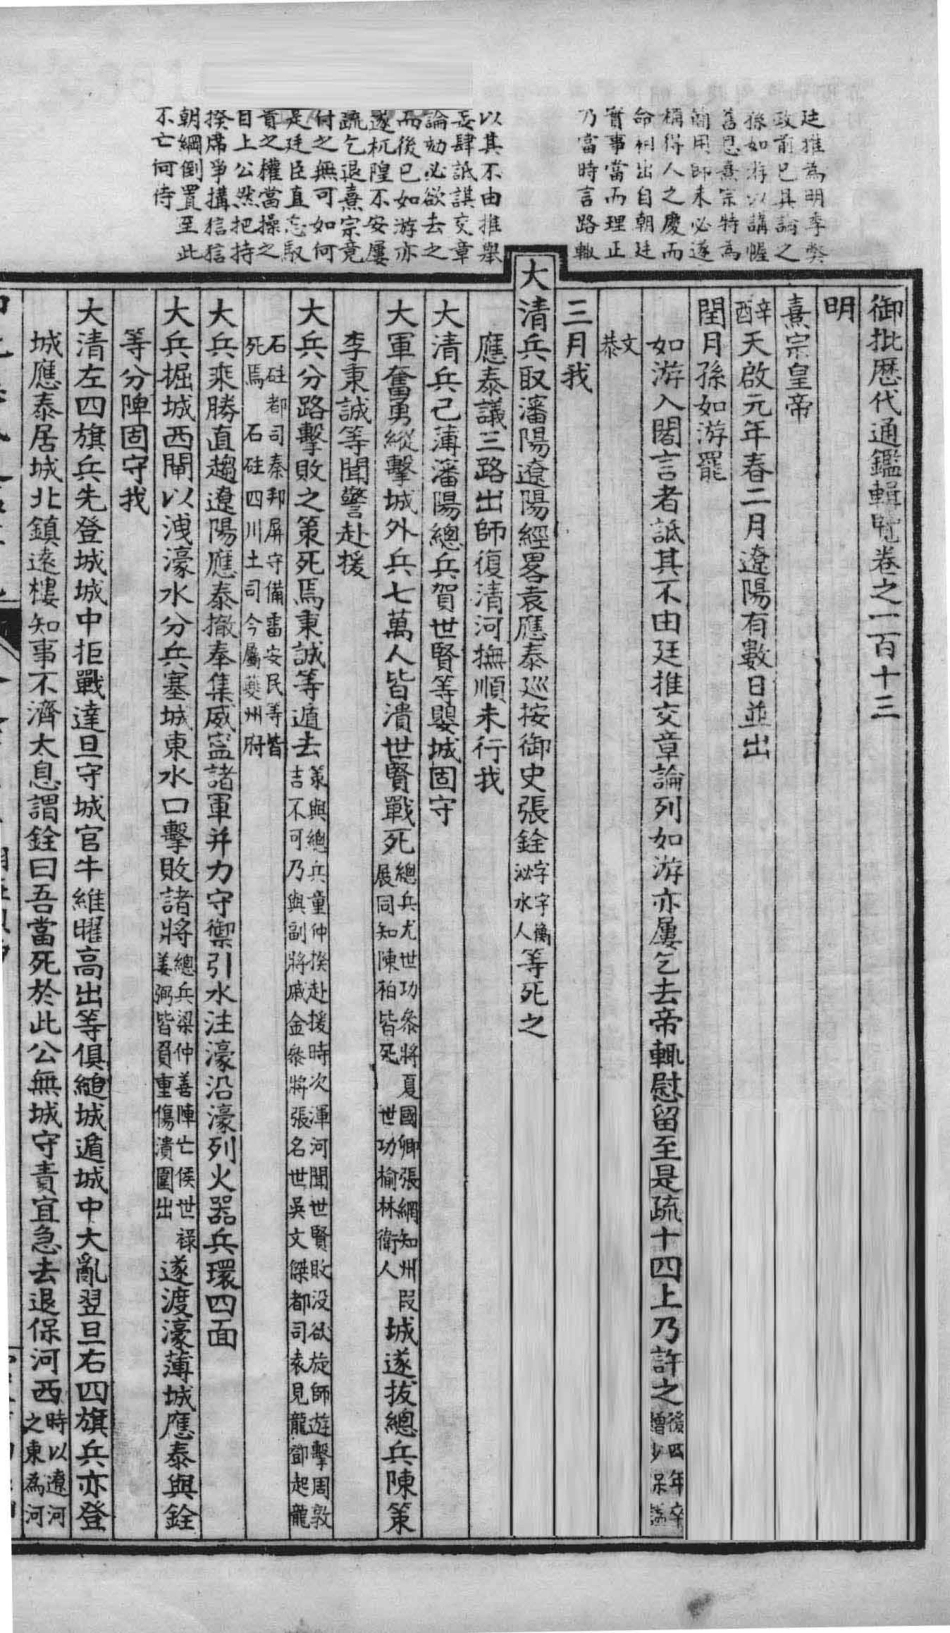 廷推為明季弊
政前已具論之
孫如游以講幄
舊恩熹宗特為
簡用即未必遂
稱得人之慶而
命相出自朝廷
實事當而理正
乃當時言路輙
以其不由推舉
妄肆詆諆交章
論劾必欲去之
而後已如游亦
遂杌隉不安屢
疏乞退熹宗竟
付之無可如何
是廷臣直忘馭
貴之權當操之
自上公然把持
揆席爭搆狺狺
朝綱倒置至此
不亡何待
御批歷代通鑑輯覽卷之一百十三
明
熹宗皇帝
辛酉天啟元年春二月遼陽有數日並出
閏月孫如游罷
如游入閣言者詆其不由廷推交章論列如游亦屢乞去帝輒慰留至是疏十四上乃許之後四年卒贈少保諡
文恭
三月我
大清兵取瀋陽遼陽經畧袁應泰巡按御史張銓字宇衡沁水人等死之
應泰議三路出師復清河撫順未行我
大清兵已薄瀋陽總兵賀世賢等嬰城固守
大軍奮勇縱擊城外兵七萬人皆潰世賢戰死總兵尤世功參將夏國卿張綱知州段展同知陳柏皆死 世功榆林衛人城遂拔總兵陳策
李秉誠等聞警赴援
大兵分路擊敗之策死焉秉誠等遁去策與總兵童仲揆赴援時次渾河聞世賢敗沒欲旋師遊擊周敦吉不可乃與副將戚金參將張名世吳文傑都司袁見龍鄧起龍
石砫都司秦邦屏守備雷安民等皆死焉 石砫四川土司今屬夔州府
大兵乘勝直趨遼陽應泰撤奉集威寧諸軍并力守禦引水注濠沿濠列火器兵環四面
大兵掘城西閘以洩濠水分兵塞城東水口擊敗諸將總兵梁仲善陣亡侯世祿姜弼皆負重傷潰圍出遂渡濠薄城應泰與銓
等分陴固守我
大清左四旗兵先登城城中拒戰達旦守城官牛維曜高出等俱縋城遁城中大亂翌旦右四旗兵亦登
城應泰居城北鎮遠樓知事不濟太息謂銓曰吾當死於此公無城守責宜急去退保河西時以遼河之東為河